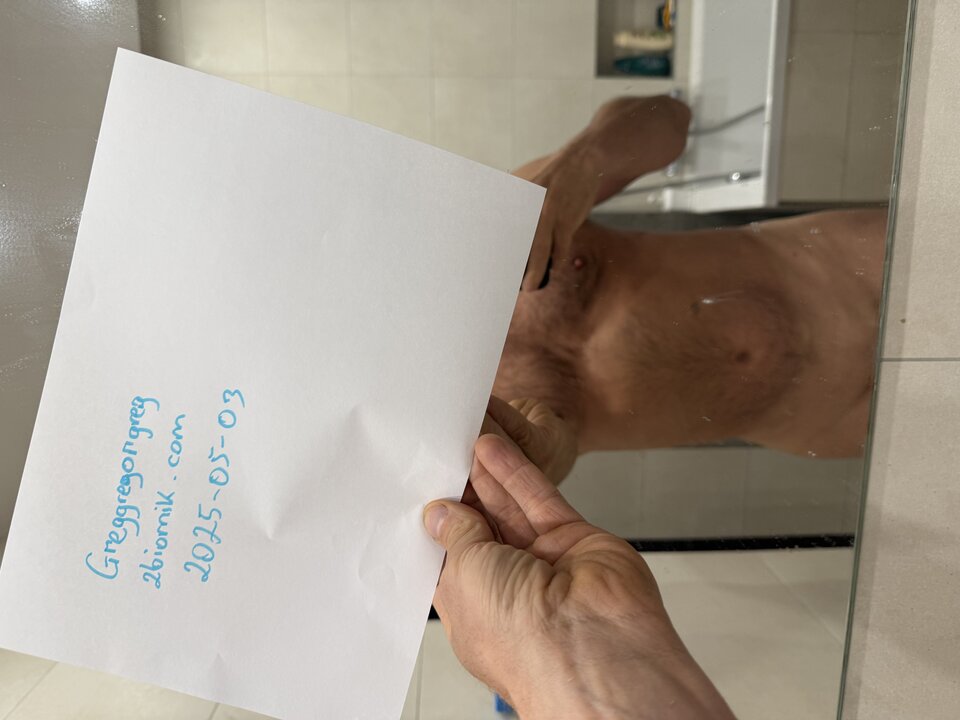 Greggregorigreg
2biomik.com
2025-05-03